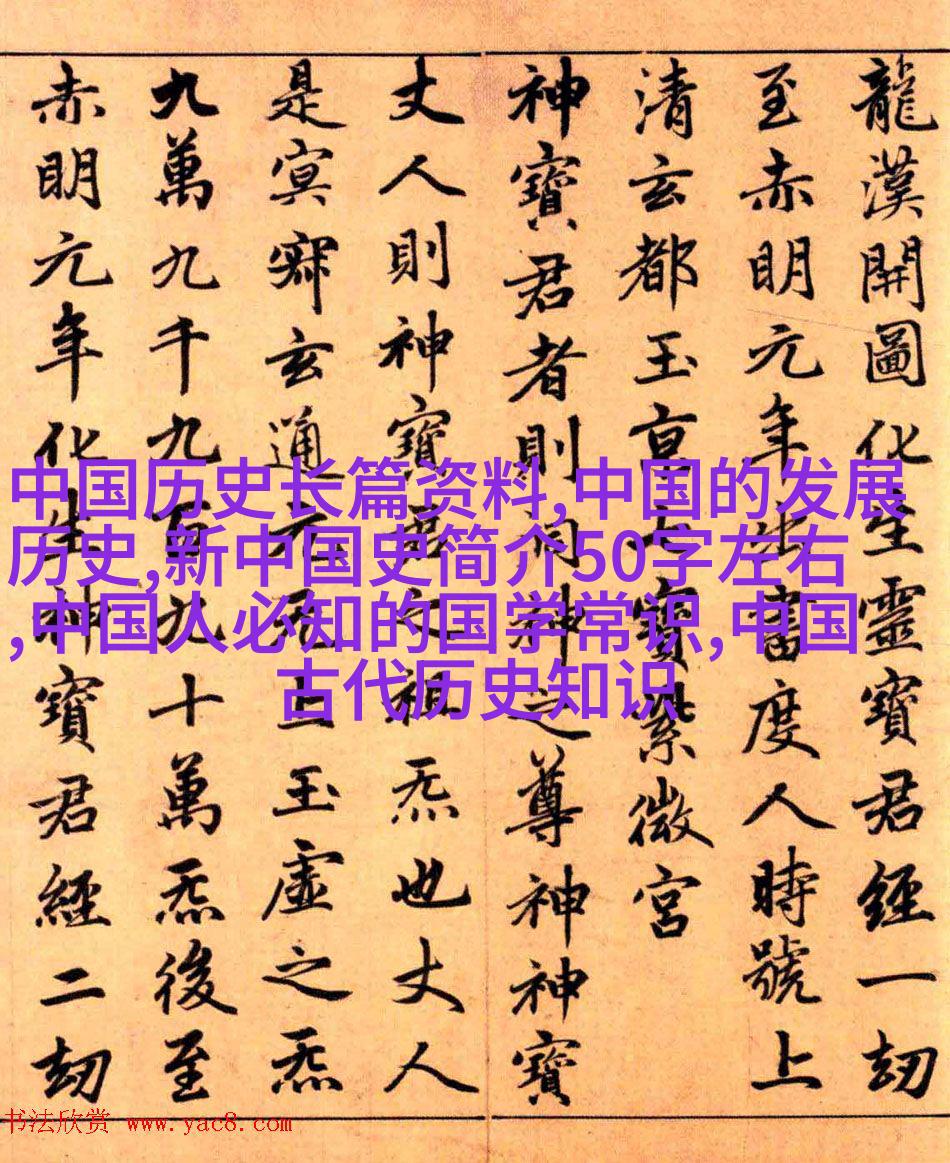 龍漢開圖化生靈寶君經一劫
至赤明元年出書度人時號上
清玄都玉京七寶紫微宮
神寶君者則洞神之尊神神寶
丈人則神寶君之祖炁也丈人
是冥寂玄通元无上玉虛之炁
九萬九千九百九十萬炁後至
赤明元年化生神寶君經二劫
中国历史长篇资料,中国的发展
历史,新中国史简介50字左右
,中国人必知的国学常识,中国
古代历史知识
书法欣赏 www.yac8.com